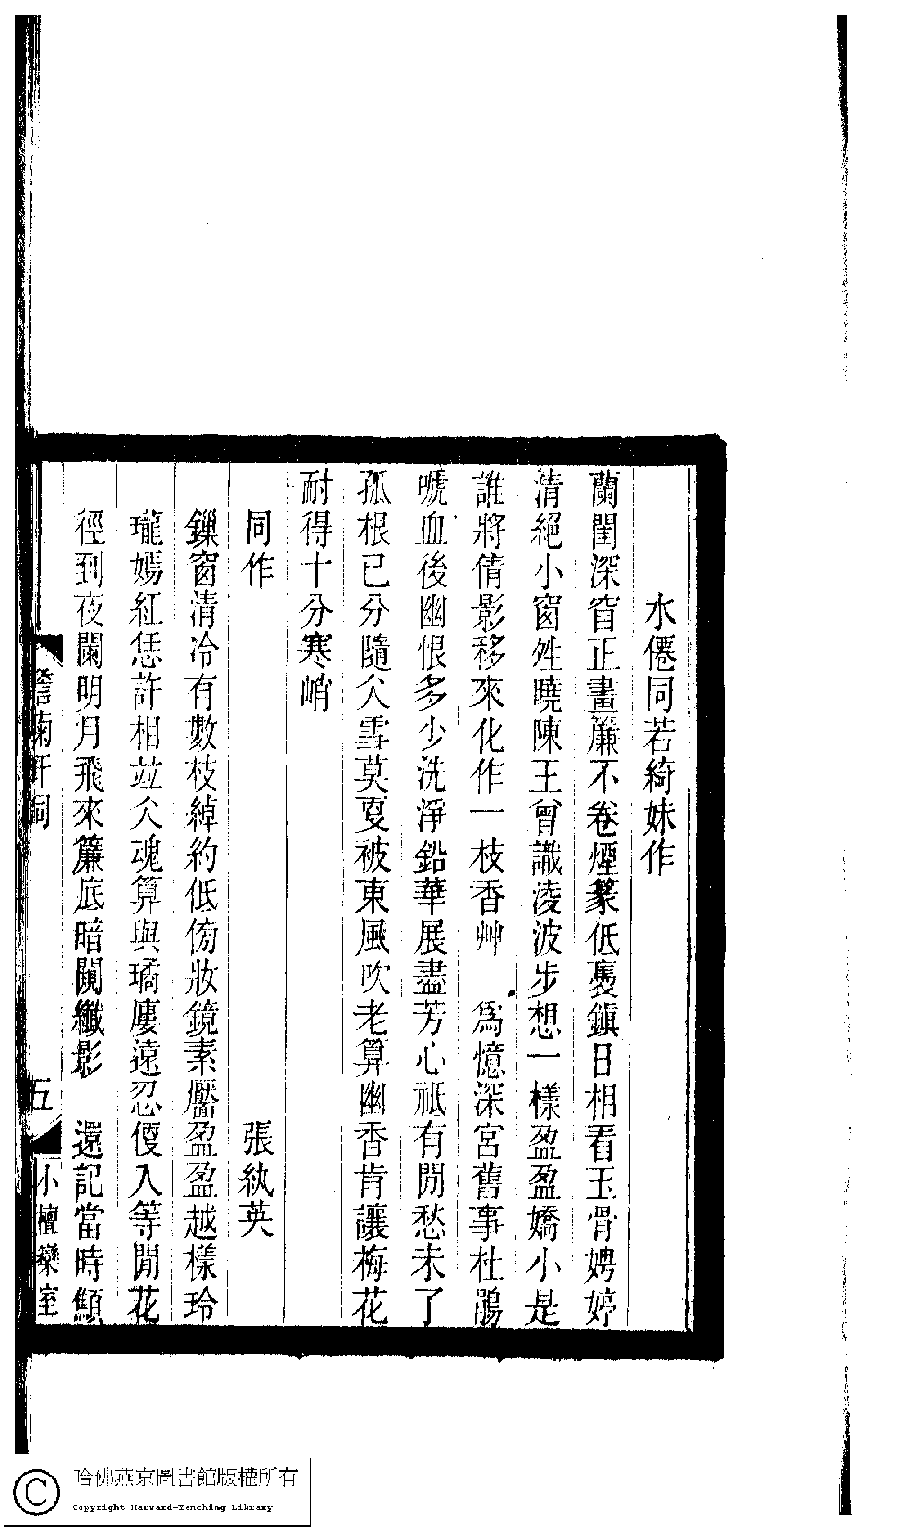 水僊同若綺妹作
蘭閨深窅正畫簾不卷煙篆低裊鎭日相看玉骨娉婷
清絕小窗性曉陳王曾識淩波步想一樣盈盈嬌小是
誰將倩影移來化作一枝香艸　爲憶深宮舊事杜鵑
嗁血後幽恨多少洗淨鉛華展盡芳心祗有閒愁未了
孤根已分隨仌雪莫夏被東風吹老算幽香肯讓梅花
耐得十分寒峭
同作　張紈英
鏁窗清冷有數枝綽約低傍妝鏡素靨盈盈越樣玲
瓏嫣紅恁許相竝仌魂算與璚廔遠忍便入等閒花
徑到夜闌明月飛來簾底暗闚纖影　還記當時顛
澹菊軒詞　五　小檀欒室
哈佛燕京圖書館版權所有
Copyright Harvard-Yenching Library